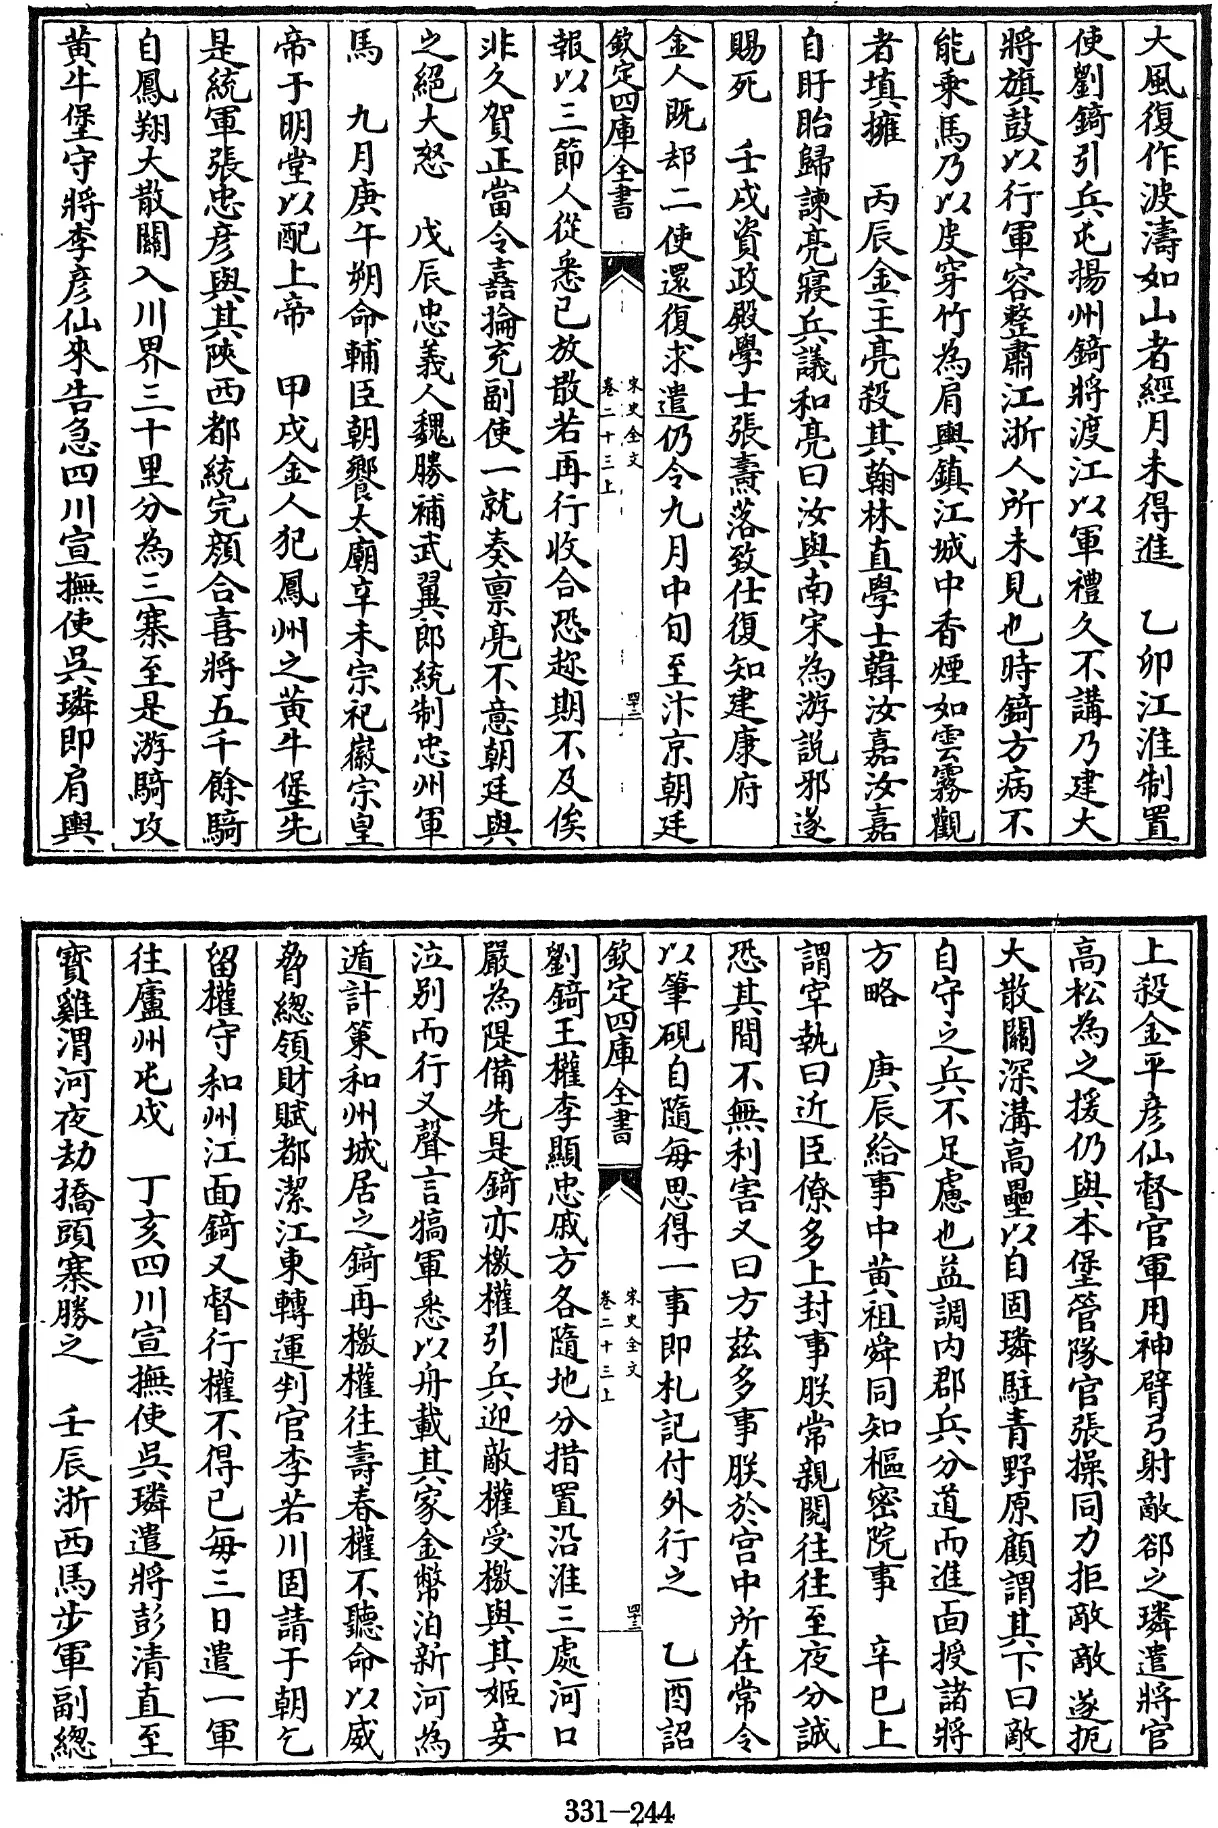 大風復作波濤如山者經月未得進　乙卯江淮制置
使劉錡引兵屯揚州錡將渡江以軍禮久不講乃建大
將旗鼓以行軍容整肅江浙人所未見也時錡方病不
能乗馬乃以皮穿竹為肩輿鎮江城中香煙如雲霧觀
者填擁　丙辰金主亮殺其翰林直學士韓汝嘉汝嘉
自盱眙歸諫亮寢兵議和亮曰汝與南宋為游説邪遂
賜死　壬戌資政殿學士張燾落致仕復知建康府
金人既却二使還復求遣仍令九月中旬至汴京朝廷
欽定四庫全書
宋史全文
卷二十三上
四十二
報以三節人從悉已放散若再行收合恐趂期不及俟
非久賀正當令嘉掄充副使一就奏禀亮不意朝廷與
之絕大怒　戊辰忠義人魏勝補武翼郎統制忠州軍
馬　九月庚午朔命輔臣朝饗太廟辛未宗祀徽宗皇
帝于明堂以配上帝　甲戌金人犯鳳州之黄牛堡先
是統軍張忠彦與其陜西都統完顔合喜將五千餘騎
自鳳翔大散關入川界三十里分為三寨至是游騎攻
黄牛堡守將李彦仙來告急四川宣撫使吳璘即肩輿
上殺金平彦仙督官軍用神臂弓射敵郤之璘遣將官
高松為之援仍與本堡管隊官張操同力拒敵敵遂扼
大散關深溝高壘以自固璘駐青野原顧謂其下曰敵
自守之兵不足慮也益調内郡兵分道而進面授諸將
方略　庚辰給事中黄祖舜同知樞密院事　辛巳上
謂宰執曰近臣僚多上封事朕常親閲往往至夜分誠
恐其間不無利害又曰方兹多事朕於宫中所在常令
以筆硯自隨每思得一事即札記付外行之　乙酉詔
欽定四庫全書
宋史全文
卷二十三上
四十三
劉錡王權李顯忠戚方各隨地分措置沿淮三處河口
嚴為隄備先是錡亦檄權引兵迎敵權受檄與其姬妾
泣别而行又聲言犒軍悉以舟載其家金幣泊新河為
遁計築和州城居之錡再檄權往壽春權不聽命以威
脅總領財賦都潔江東轉運判官李若川固請于朝乞
留權守和州江面錡又督行權不得已每三日遣一軍
往廬州屯戍　丁亥四川宣撫使吳璘遣將彭清直至
寳雞渭河夜劫橋頭寨勝之　壬辰浙西馬步軍副總
331—244